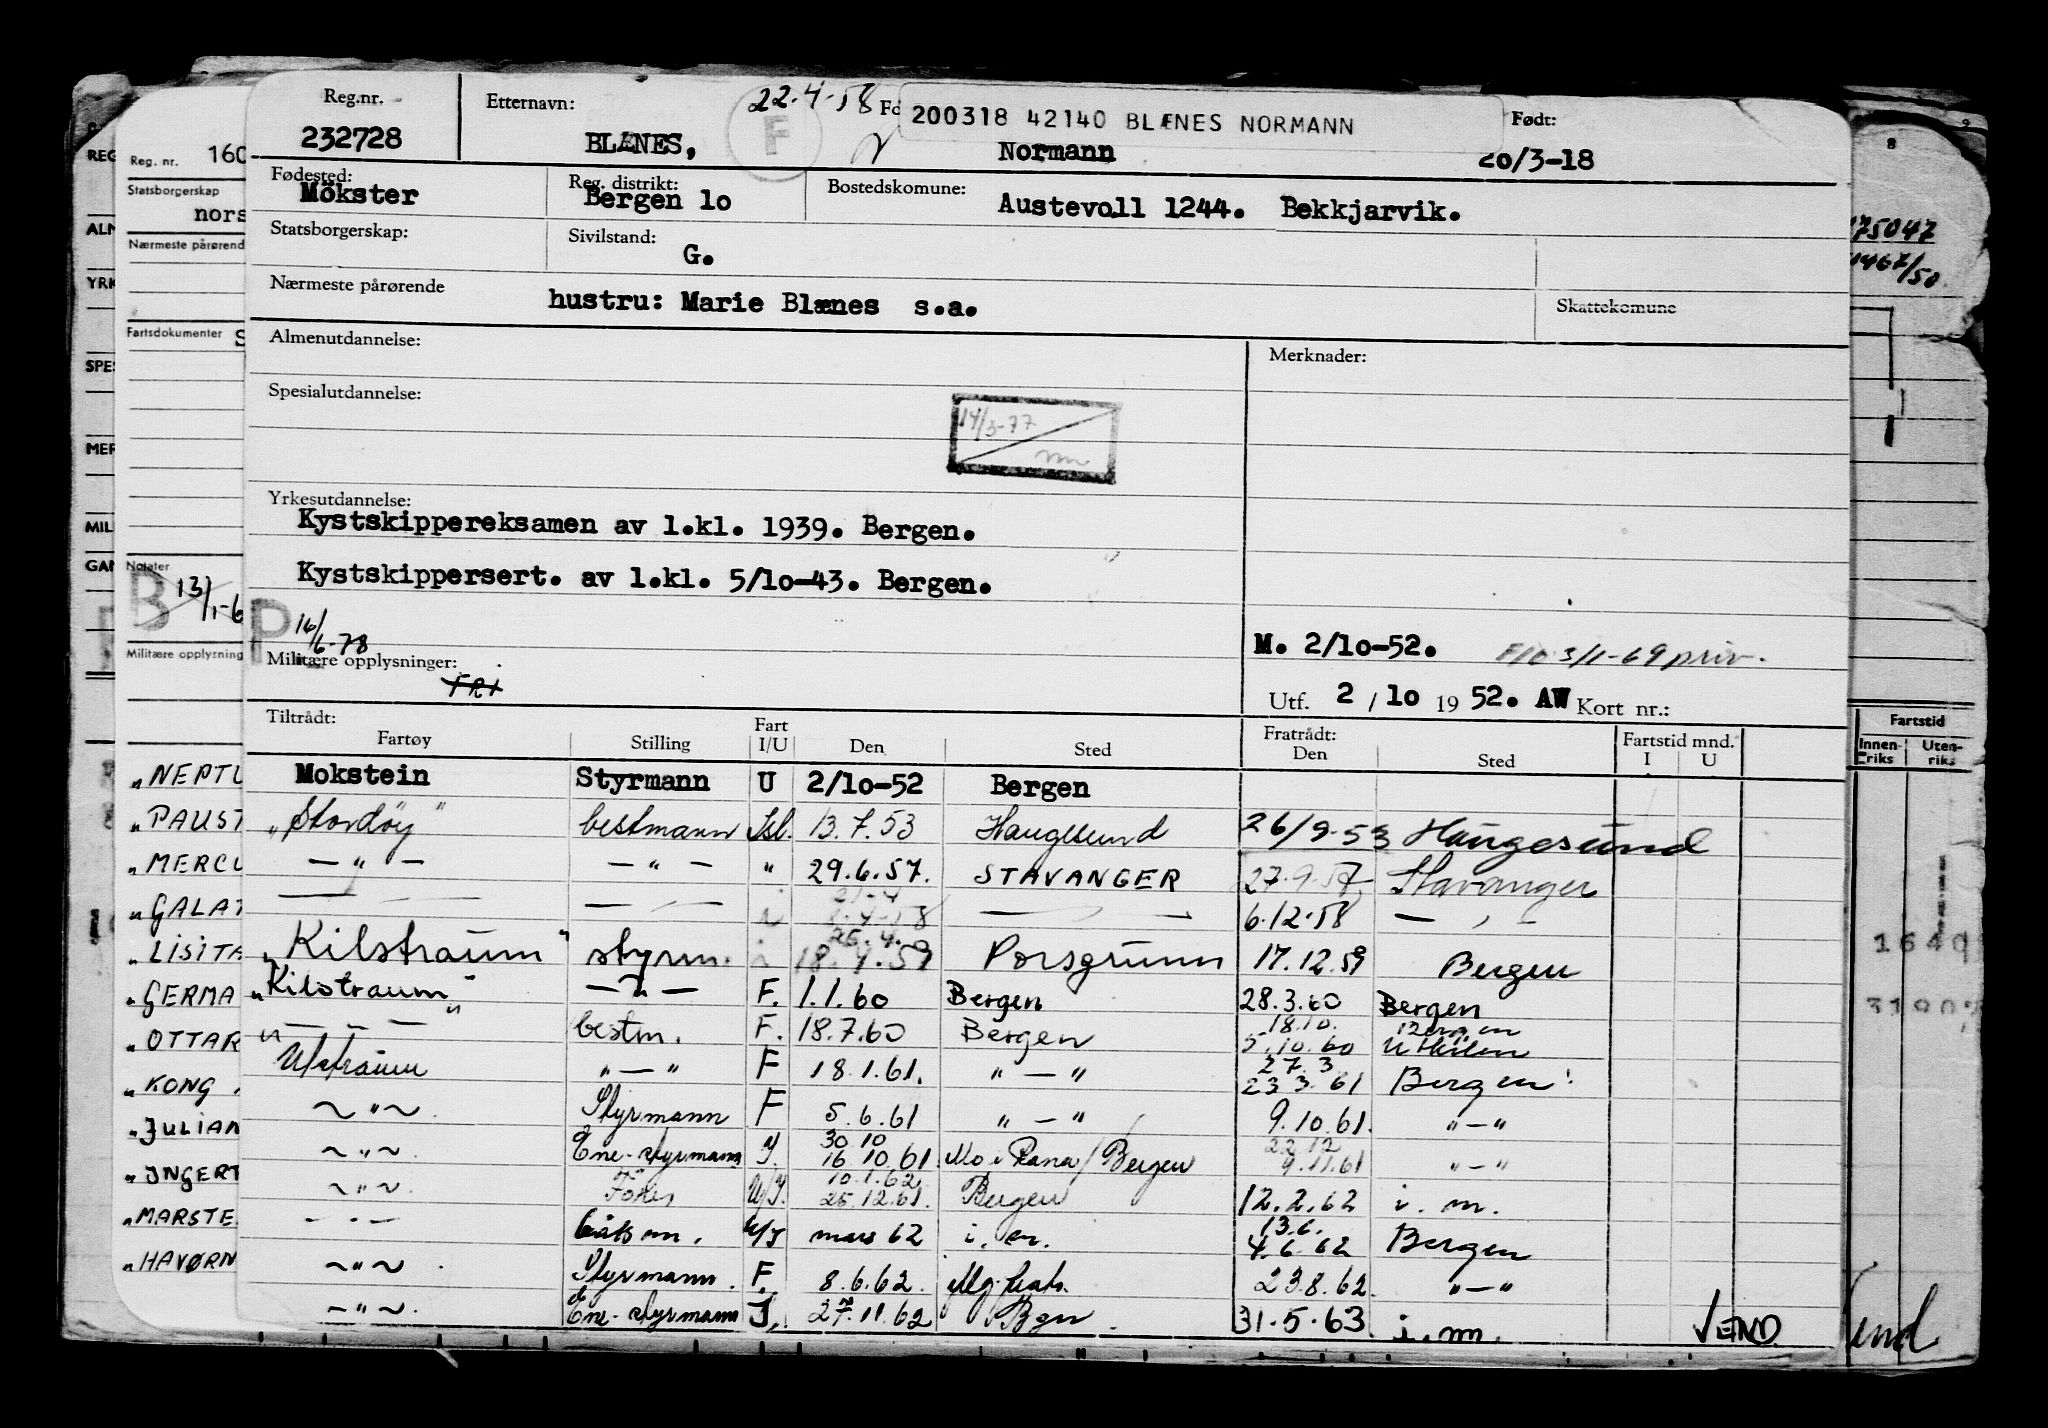 Reg.nr. Etternavn: 22-4-58 Fo 200318 42140 BLÆNES NORMANN Født:
232728 BLÆNES, F Normann 20/3-18
Fødested: Reg. distrikt: Bostedskomune:
Mökster Bergen 10 Austevoll 1244. Bekkjarvik.
Statsborgerskap: Sivilstand: G.
Nærmeste pårørende hustru: Marie Blænes s.a. Skattekomune
Almenutdannelse: Merknader:
Spesialutdannelse:
14/3-77
Yrkesutdannelse:
Kystskippereksamen av 1.kl. 1939. Bergen.
Kystskippersert. av 1.kl. 5/10-43. Bergen.
P 16/6-78
M. 2/10-52. F10 3/1-69 priv.
Militære opplysninger: FRI
Utf. 2 / 10 19 52. AW Kort nr.:
Tiltrådt: Fart Fratrådt: Fartstid mnd.
Fartøy Stilling I/U Den Sted Den Sted I U
Mokstein Styrmann U 2/10-52 Bergen
"Stordöy" bestmann Isl. 13.7.53 Haugesund 26/9-53 Haugesund
— " — — " — " 29.6.57. STAVANGER 27.9.57 Stavanger
21-4
6.12.58 — " —
25.4.
"Kilstraum" styrm. i 18.4.59 Porsgrunn 17.12.59 Bergen
"Kilstraum" — " — F. 1.1.60 Bergen 28.3.60 Bergen
18.10. Bergen
— " — bestm. F. 18.7.60 Bergen 5.10.60
27.3
Ulstraum " — " F 18.1.61. " — " 23.3.61 Bergen
~ " ~ Styrmann F 5.6.61 " — " 9.10.61. " — "
30 10 22.12
~ " ~ Ene-styrmann I. 16 10.61. Mo i Rana / Bergen 9.11.61 " — "
10.1.62
~ " ~ U/I. 25.12.61. Bergen 12.2.62 i. m.
13.6.
— " — båtsm. U/I mars 62 i. m. 4.6.62 Bergen
~ " ~ Styrmann. F. 8.6.62. 23.8.62. " — "
~ " ~ Ene-styrmann I. 27.11.62 Bgn 31.5.63 i. m. VEND
REG
ALM
YRK
SPES
MER
MIL
GAN
Reg. nr. 160
Statsborgerskap
nors
Nærmeste pårørend
Fartsdokumenter S
Notater
B 13/1-6
Militære opplysning
"NEPTU
"PAUST
"MERCU
"GALAT
"LISITA
"GERMA
"OTTAR
"KONG
"JULIAN
"INGERT
"MARSTE
"HAVØRN
8
75047
1467/50
Fartstid
Innen-riks Uten-riks
1640
3190
end